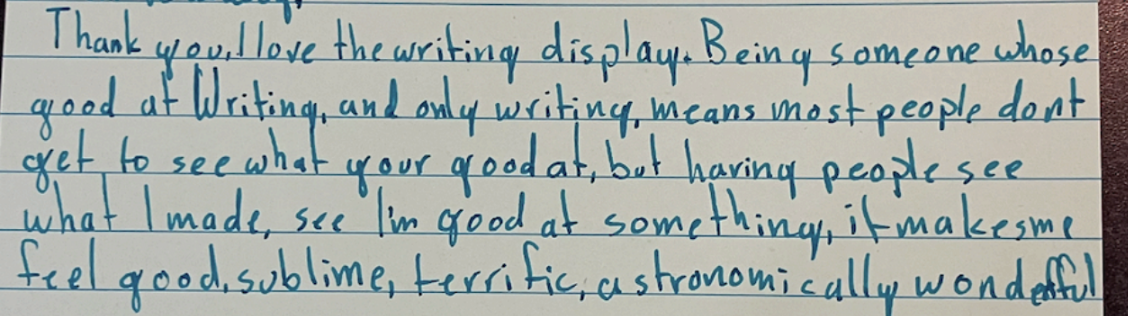 Thank you, I love the writing display. Being someone whose
good at Writing, and only writing, means most people dont
get to see what your good at, but having people see
what I made, see I'm good at something, it makes me
feel good, sublime, terrific, astronomically wonderful